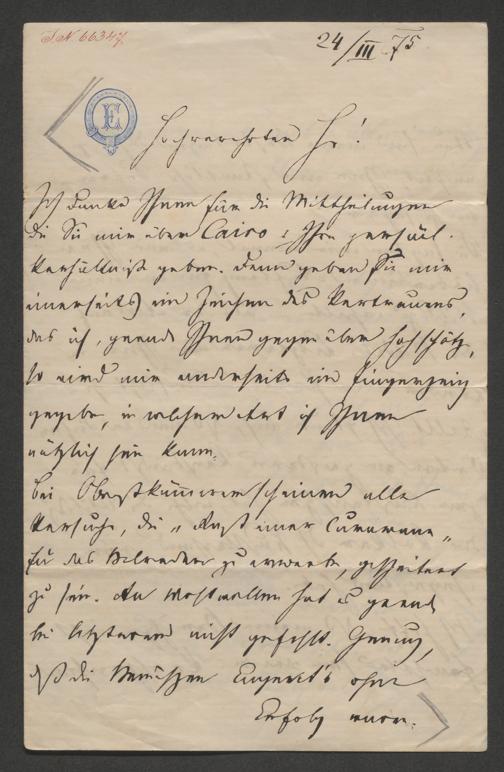 I.N. 66347
24/III 75
E
Hochverehrter Hr!
Ich danke Ihnen für die Mittheilungen
die Sie mir über Cairo u Ihre persönl.
Verhältniße geben. Denn geben Sie mir
einerseits ein Zeichen des Vertrauens,
das ich, gerade Ihnen gegenüber hochschätze,
so wird mir anderseits ein Fingerzeig
gegeben, in welcher Art ich Ihnen
nützlich sein kann.
Bei Oberstkämmerer scheinen alle
Versuche, die „Rast einer Carawane"
für das Belvedere zu erwerben, gescheitert
zu sein. An Wohlwollen hat es gerade
bei letzterem nicht gefehlt. Genug,
daß die Bemühungen Engerth's ohne
Erfolg waren.